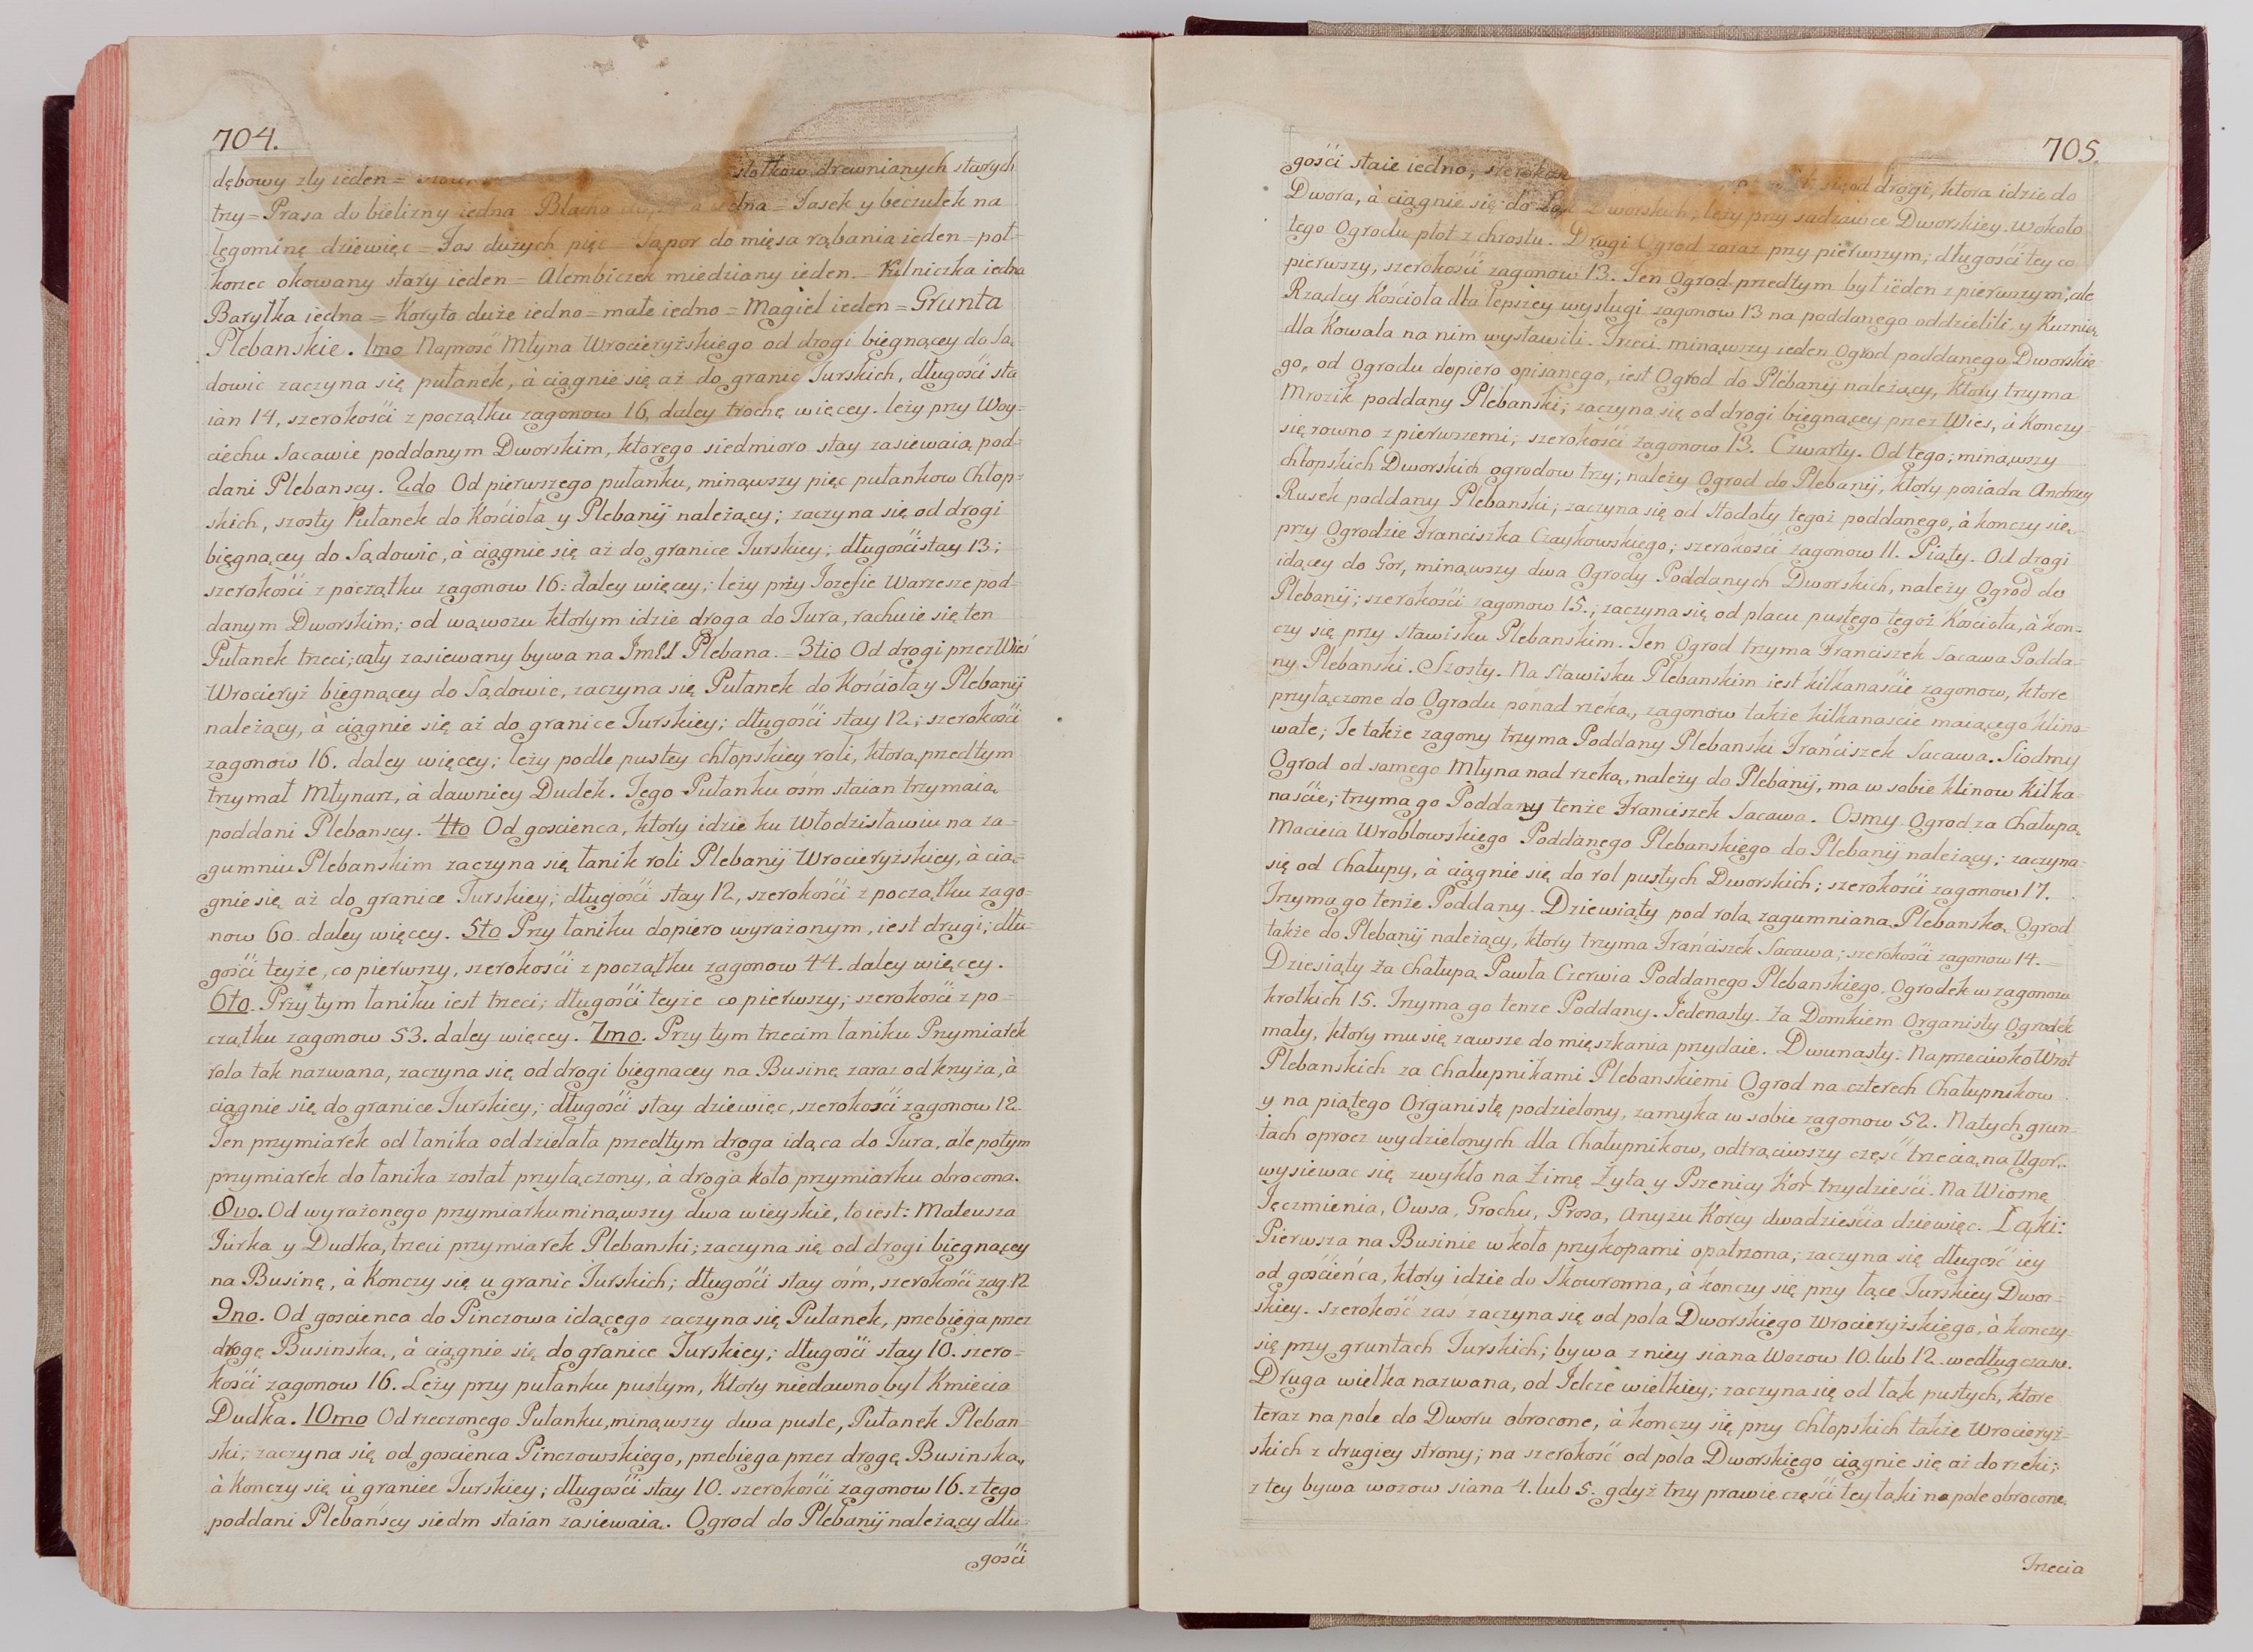 704.
dębowy zły ieden = stołkow drewnianych starych
trzy = Prasa do bielizny iedna Blacha iedna = Fasek y beczułek na
legominę dziewięc = Fas dużych pięc = Topor do mięsa rąbania ieden = poł=
korzec okowany stary ieden = Alembiczek miedziany ieden = Kulniczka iedna
Baryłka iedna = Koryto duże iedno = małe iedno = Magiel ieden = Grunta
Plebanskie. 1mo Naprość Młyna Wrocieryżskiego od drogi biegnącey do Są,
dowic zaczyna się pułanek, à ciągnie się aż do granic Turskich, długości sta
ian 14, szerokości z początku zagonow 16, daley trochę więcey. leży przy Woy=
ciechu Sacawie poddanym Dworskim, ktorego siedmioro stay zasiewaią pod=
dani Plebanscy. 2do Od pierwszego pułanku, minąwszy pięc pułankow Chłop=
skich, szosty Pułanek do Kościoła y Plebanij należący; zaczyna się od drogi
biegnącey do Sądowic, à ciągnie się aż do granice Turskiey; długości stay 13;
szerokości z początku zagonow 16: daley więcey; leży przy Jozefie Warzesze pod=
danym Dworskim; od wąwozu ktorym idzie droga do Tura, rachuie się ten
Pułanek trzeci; cały zasiewany bywa na Plebana. = 3tio Od drogi przez Wieś
Wrocieryż biegnącey do Sądowic, zaczyna się Pułanek do Kościoła y Plebanij
należący, à ciągnie się aż do granice Turskiey; długości stay 12; szerokości
zagonow 16. daley więcey; leży podle pustey chłopskiey roli, ktorą przedtym
trzymał Młynarz, à dawniey Dudek. Tego Pułanku ośm staian trzymaią
poddani Plebanscy. 4to Od goscienca, ktory idzie ku Włodzisławiu na za=
gumniu Plebanskim zaczyna się łanik roli Plebanij Wrocieryżskiey, à cią=
gnie się aż do granice Turskiey; długości stay 12, szerokości z początku zago=
now 60. daley więcey. 5to Przy łaniku dopiero wyrażonym, iest drugi; dłu=
gości teyże, co pierwszy, szerokości z początku zagonow 44. daley więcey.
6to. Przy tym łaniku iest trzeci; długości teyże co pierwszy; szerokości z po=
czątku zagonow 53. daley więcey. 7mo. Przy tym trzecim łaniku Przymiarek
rola tak nazwana, zaczyna się od drogi biegnacey na Businę zaraz od krzyża, à
ciągnie się do granice Turskiey; długości stay dziewięc, szerokości zagonow 12.
Ten przymiarek od łanika oddzielała przedtym droga idąca do Tura, ale potym
przymiarek do łanika został przyłączony, à droga koło przymiarku obrocona.
8vo. Od wyrażonego przymiarku minąwszy dwa wieyskie, to iest: Mateusza
Jurka y Dudka, trzeci przymiarek Plebanski; zaczyna się od drogi biegnącey
na Businę, à Konczy się u granic Turskich; długości stay ośm, szerokości zag. 12
9no. Od goscienca do Pinczowa idącego zaczyna się Pułanek, przebiega przez
drogę Businską, à ciągnie się do granice Turskiey; długości stay 10. szero=
kości zagonow 16. Leży przy pułanku pustym, Ktory niedawno był Kmiecia
Dudka. 10mo Od rzeczonego Pułanku, minąwszy dwa puste, Pułanek Pleban=
ski; zaczyna się od goscienca Pinczowskiego, przebiega przez drogę Businską,
à Konczy się ù granice Turskiey; długości stay 10. szerokości zagonow 16. z tego
poddani Plebańscy siedm staian zasiewaią. Ogrod do Plebanij należący dłu=
gości
705.
gości staie iedno, szerokos się od drogi, ktora idzie do
Dwora, à ciągnie się do Dworskich, leży przy sadzawce Dworskiey. wokoło
tego Ogrodu płot z chrostu. Drugi Ogrod zaraz przy pierwszym; długości tey co
pierwszy, szerokości zagonow 13. Ten Ogrod przedtym był ieden z pierwszym, ale
Rządcy Kościoła dla lepszey wysługi zagonow 13 na poddanego oddzielili y Kuznią
dla Kowala na nim wystawili. Trzeci. minąwszy ieden Ogrod poddanego Dworskie=
go, od Ogrodu dopiero opisanego, iest Ogrod do Plebanij należący, ktory trzyma
Mrozik poddany Plebanski; zaczyna się od drogi biegnącey przez Wies, à Konczy
się rowno z pierwszemi; szerokości zagonow 13. Czwarty. Od tego; minąwszy
chłopskich Dworskich ogrodow trzy; należy Ogrod do Plebanij, ktory posiada Andrzey
Rusek poddany Plebanski; zaczyna się od Stodoły tegoż poddanego, à konczy się,
przy Ogrodzie Franciszka Czaykowskiego; szerokości zagonow 11. Piąty. Od drogi
idącey do Gor, minąwszy dwa Ogrody Poddanych Dworskich, należy Ogrod do
Plebanij; szerokości zagonow 15.; zaczyna się od placu pustego tegoż Kościoła, à kon=
czy się przy stawisku Plebanskim. Ten Ogrod trzyma Franciszek Sacawa Podda=
ny Plebanski. Szosty. Na Stawisku Plebanskim iest kilkanaście zagonow, ktore
przyłączone do Ogrodu ponad rzeką, zagonow także kilkanascie maiącego klino=
wate; Te także zagony trzyma Poddany Plebanski Franciszek Sacawa. Siodmy
Ogrod od samego Młyna nad rzeką, należy do Plebanij, ma w sobie klinow kilka=
naście; trzyma go Poddany tenże Franciszek Sacawa. Osmy Ogrod za Chałupą
Macieia Wroblowskiego Poddanego Plebanskiego do Plebanij należący; zaczyna=
się od Chałupy, à ciągnie się do rol pustych Dworskich; szerokości zagonow 17.
Trzyma go tenże Poddany. Dziewiąty pod rolą zagumnianą Plebanską Ogrod
także do Plebanij należący, ktory trzyma Franciszek Sacawa; szerokości zagonow 14. =
Dziesiąty za Chałupą Pawła Czerwia Poddanego Plebanskiego. Ogrodek w zagonow
krotkich 15. Trzyma go tenze Poddany. Jedenasty. Za Domkiem Organisty Ogrodek
mały, ktory mu się zawsze do mięszkania przydaie. Dwunasty. Naprzeciwko Wrot
Plebanskich za Chałupnikami Plebanskiemi Ogrod na czterech Chałupnikow
y na piątego Organistę podzielony, zamyka w sobie zagonow 52. Na tych grun=
tach oprocz wydzielonych dla Chałupnikow, odtrąciwszy częsć trzecią na Ugor,
wysiewac się zwykło na Zimę Żyta y Pszenicy Kor trzydzieści. Na Wiosnę
Jęczmienia, Owsa, Grochu, Prosa, Anyżu Korcy dwadzieścia dziewięc. Łąki:
Pierwsza na Businie w koło przykopami opatrzona; zaczyna się długość iey
od gościeńca, ktory idzie do Skowronna, à konczy się przy łące Turskiey Dwor=
skiey. Szerokość zaś zaczyna się od pola Dworskiego Wrocieryżskiego, à konczy=
się przy gruntach Turskich; bywa z niey siana Wozow 10. lub 12. według czasu.
Druga wielka nazwana, od Jelcze wielkiey; zaczyna się od łąk pustych, ktore
teraz na pole do Dworu obrocone, à konczy się przy Chłopskich także Wrocieryż=
skich z drugiey strony; na szerokość od pola Dworskiego ciągnie się aż do rzeki;
z tey bywa wozow siana 4. lub 5. gdyż trzy prawie części tey łąki na pole obrocone.
Trzecia